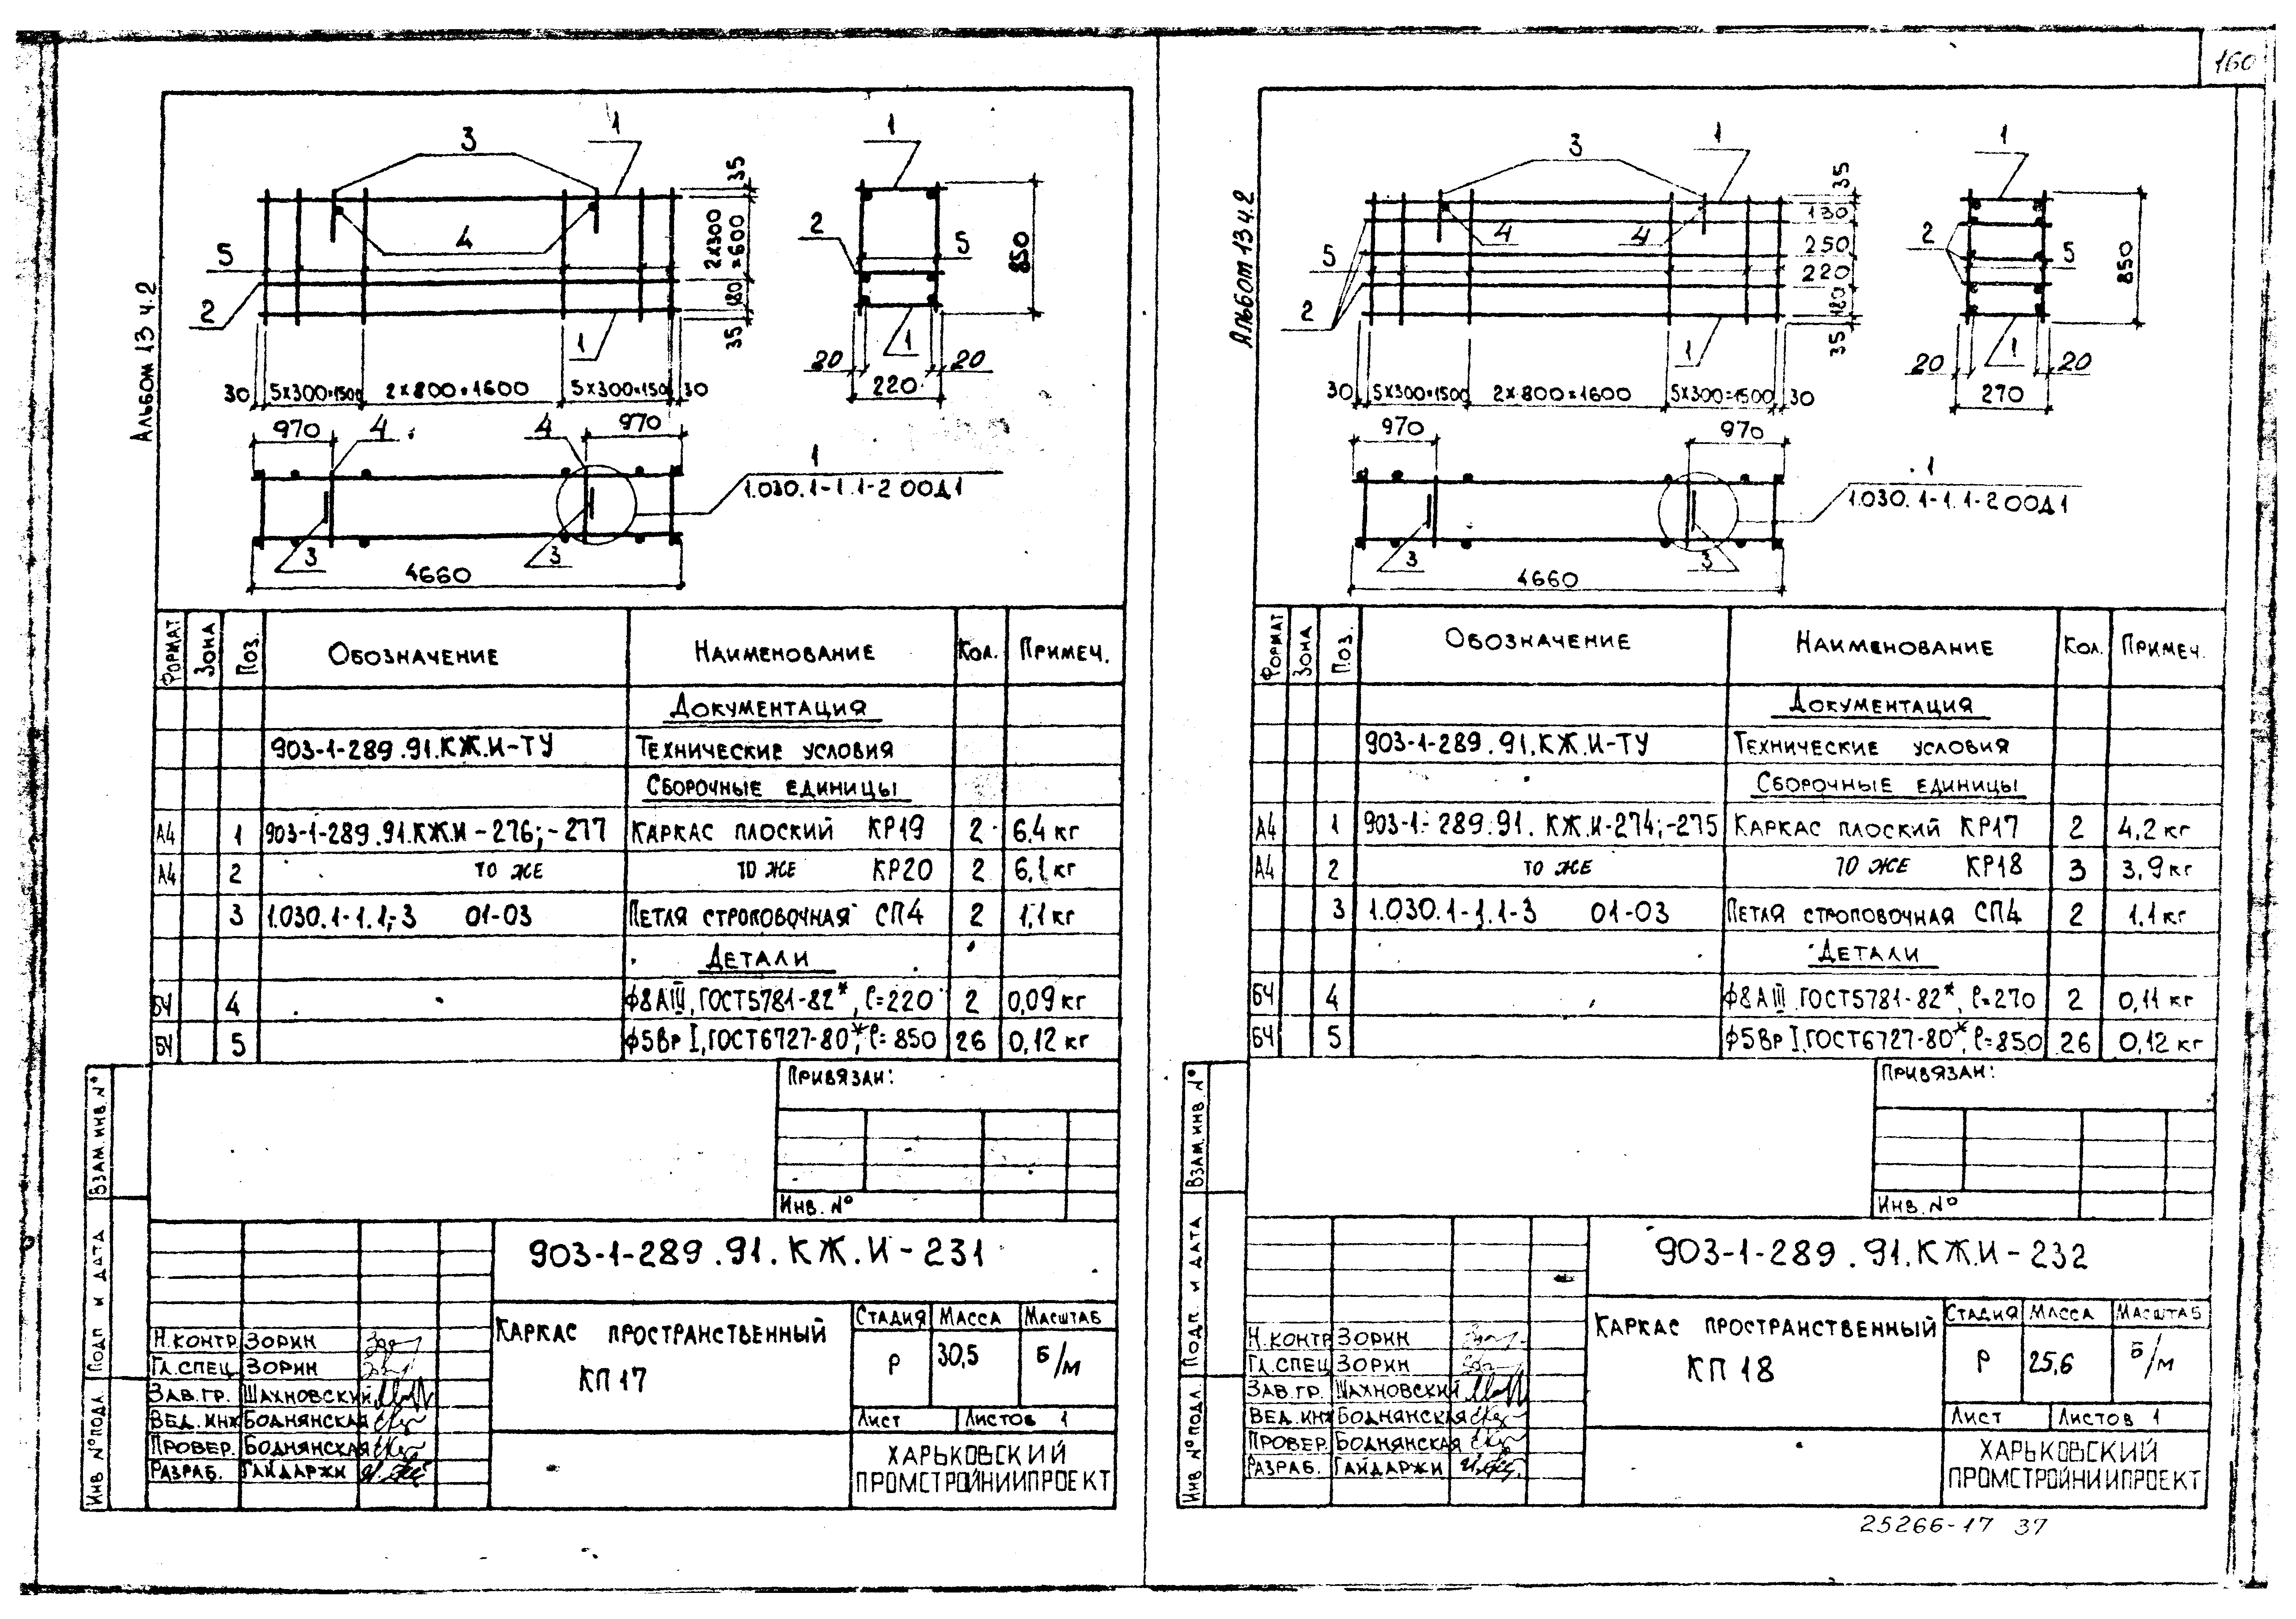 160
Альбом 13 ч.2
3
1
1
35
2х300
=600
180
35
4
5
2
1
2
5
850
1
20
20
220
30
5х300=1500
2х800=1600
5х300=150
30
970
4
4
970
1
1.030.1-1.1-2 00Д1
3
3
4660
ФОРМАТ
ЗОНА
ПОЗ.
ОБОЗНАЧЕНИЕ
НАИМЕНОВАНИЕ
КОЛ.
ПРИМЕЧ.
ДОКУМЕНТАЦИЯ
903-1-289.91.КЖ.И-ТУ ТЕХНИЧЕСКИЕ УСЛОВИЯ
СБОРОЧНЫЕ ЕДИНИЦЫ
А4 1 903-1-289.91.КЖ.И-276;-277 КАРКАС ПЛОСКИЙ КР19 2 6.4 кг
А4 2 ТО ЖЕ ТО ЖЕ КР20 2 6,1 кг
3 1.030.1-1.1-3 01-03 ПЕТЛЯ СТРОПОВОЧНАЯ СП4 2 1,1 кг
ДЕТАЛИ
БЧ 4 ф8АIII, ГОСТ5781-82*, ℓ=220 2 0,09 кг
БЧ 5 ф5Вр I, ГОСТ6727-80*, ℓ=850 26 0,12 кг
ПРИВЯЗАН:
ИНВ. №
ВЗАМ. ИНВ. №
ПОДП И ДАТА
ИНВ №ПОДЛ.
903-1-289.91.КЖ.И-231
КАРКАС ПРОСТРАНСТВЕННЫЙ
КП17
СТАДИЯ МАССА МАСШТАБ
Р 30,5 Б/М
ЛИСТ ЛИСТОВ 1
Н.КОНТР ЗОРИН
ГЛ.СПЕЦ ЗОРИН
ЗАВ.ГР. ШАХНОВСКИЙ
ВЕД.ИНЖ БОДНЯНСКАЯ
ПРОВЕР. БОДНЯНСКАЯ
РАЗРАБ. ГАЙДАРЖИ
ХАРЬКОВСКИЙ
ПРОМСТРОЙНИИПРОЕКТ
Альбом 13 ч.2
3
1
1
35
130
250
220
180
35
4
4
5
2
1
2
5
850
1
20
20
270
30
5х300=1500
2х800=1600
5х300=1500
30
970
970
1
1.030.1-1.1-2 00Д1
3
3
4660
ФОРМАТ
ЗОНА
ПОЗ.
ОБОЗНАЧЕНИЕ
НАИМЕНОВАНИЕ
КОЛ.
ПРИМЕЧ.
ДОКУМЕНТАЦИЯ
903-1-289.91.КЖ.И-ТУ ТЕХНИЧЕСКИЕ УСЛОВИЯ
СБОРОЧНЫЕ ЕДИНИЦЫ
А4 1 903-1-289.91.КЖ.И-274;-275 КАРКАС ПЛОСКИЙ КР17 2 4,2 кг
А4 2 ТО ЖЕ ТО ЖЕ КР18 3 3,9 кг
3 1.030.1-1.1-3 01-03 ПЕТЛЯ СТРОПОВОЧНАЯ СП4 2 1.1 кг
ДЕТАЛИ
БЧ 4 ф8АIII, ГОСТ5781-82*, ℓ=270 2 0,11 кг
БЧ 5 ф5Вр I, ГОСТ6727-80*, ℓ=850 26 0,12 кг
ПРИВЯЗАН:
ИНВ. №
ВЗАМ. ИНВ. №
ПОДП. И ДАТА
ИНВ. №ПОДЛ.
903-1-289.91.КЖ.И-232
КАРКАС ПРОСТРАНСТВЕННЫЙ
КП18
СТАДИЯ МАССА МАСШТАБ
Р 25,6 Б/М
ЛИСТ ЛИСТОВ 1
Н.КОНТР ЗОРИН
ГЛ.СПЕЦ ЗОРИН
ЗАВ.ГР. ШАХНОВСКИЙ
ВЕД.ИНЖ БОДНЯНСКАЯ
ПРОВЕР. БОДНЯНСКАЯ
РАЗРАБ. ГАЙДАРЖИ
ХАРЬКОВСКИЙ
ПРОМСТРОЙНИИПРОЕКТ
25266-17 37